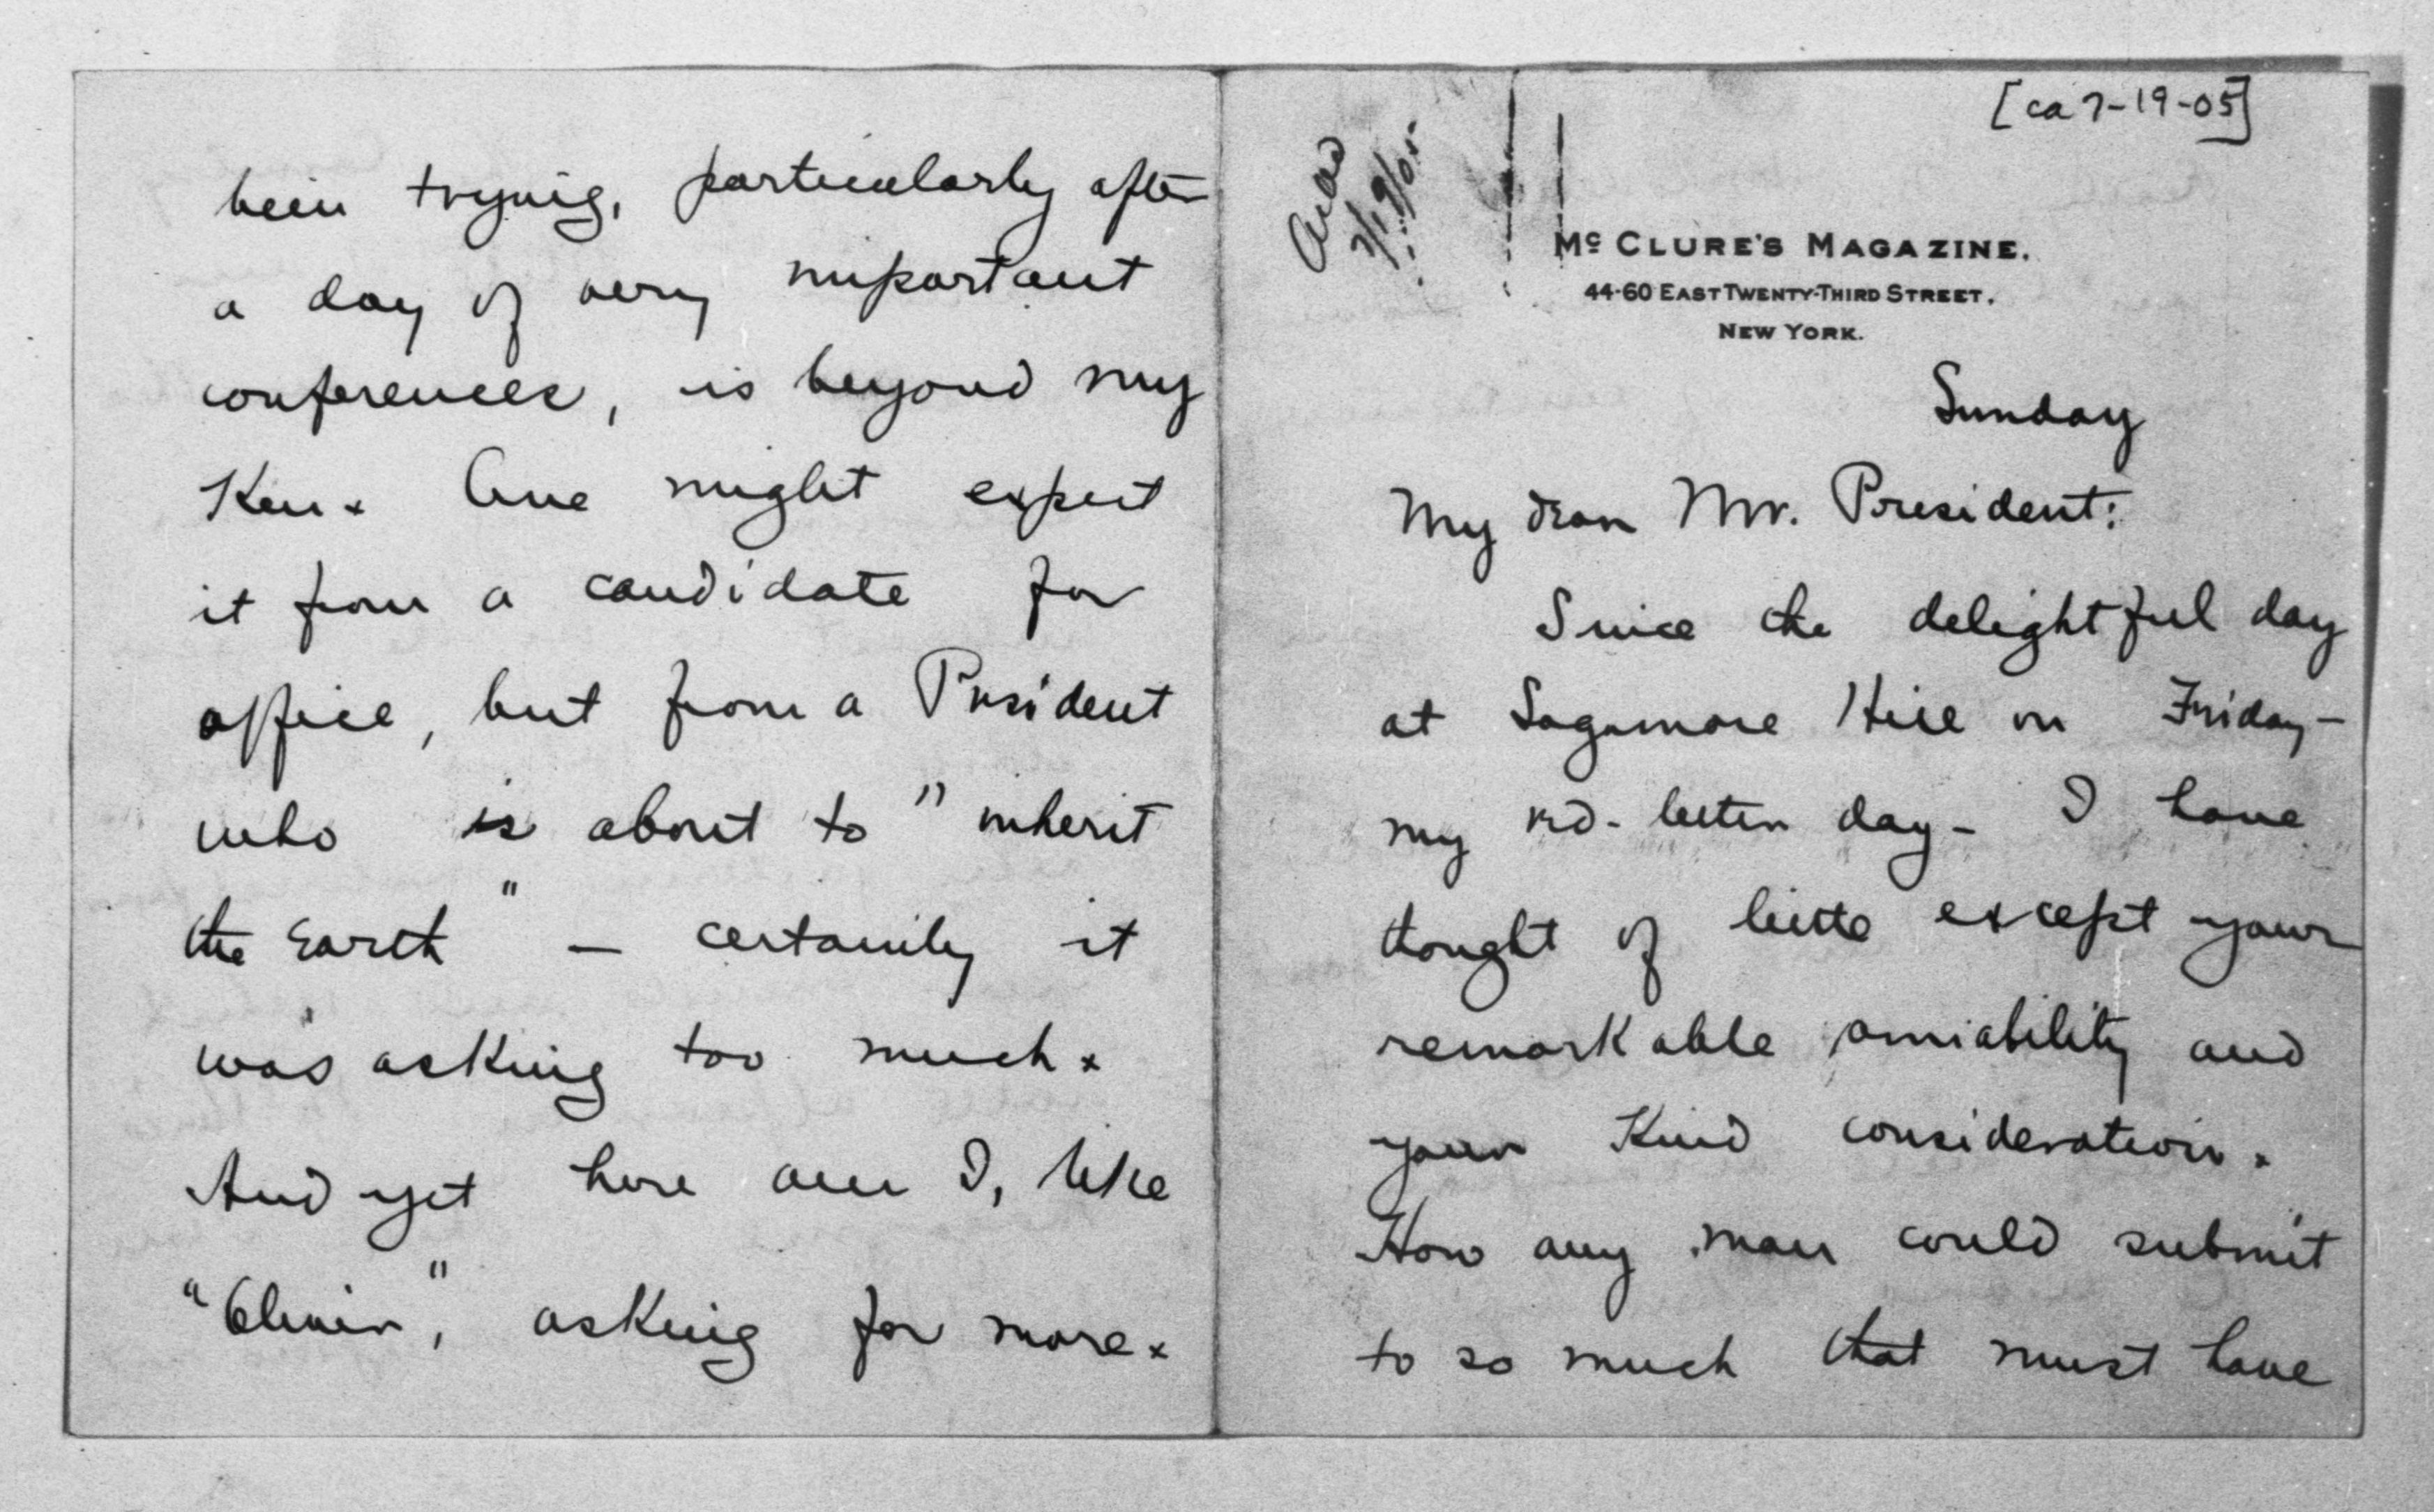 [ca 7-19-05]
Ackd
7/19/05
McCLURE'S MAGAZINE.
44-60 EAST TWENTY-THIRD STREET.
NEW YORK.
Sunday
My dear Mr. President:
Since the delightful day
at Sagamore Hill on Friday-
my red-letter day- I have
thought of little except your
remarkable amiability and
your kind consideration.
How any man could submit
to so much that must have
been trying, particularly after
a day of very important
conferences, is beyond my
Ken. One might expect
it from a candidate for
office, but from a President
who is about to "inherit
the Earth" — certainly it
was asking too much.
And yet here am I, like
"Oliver," asking for more.